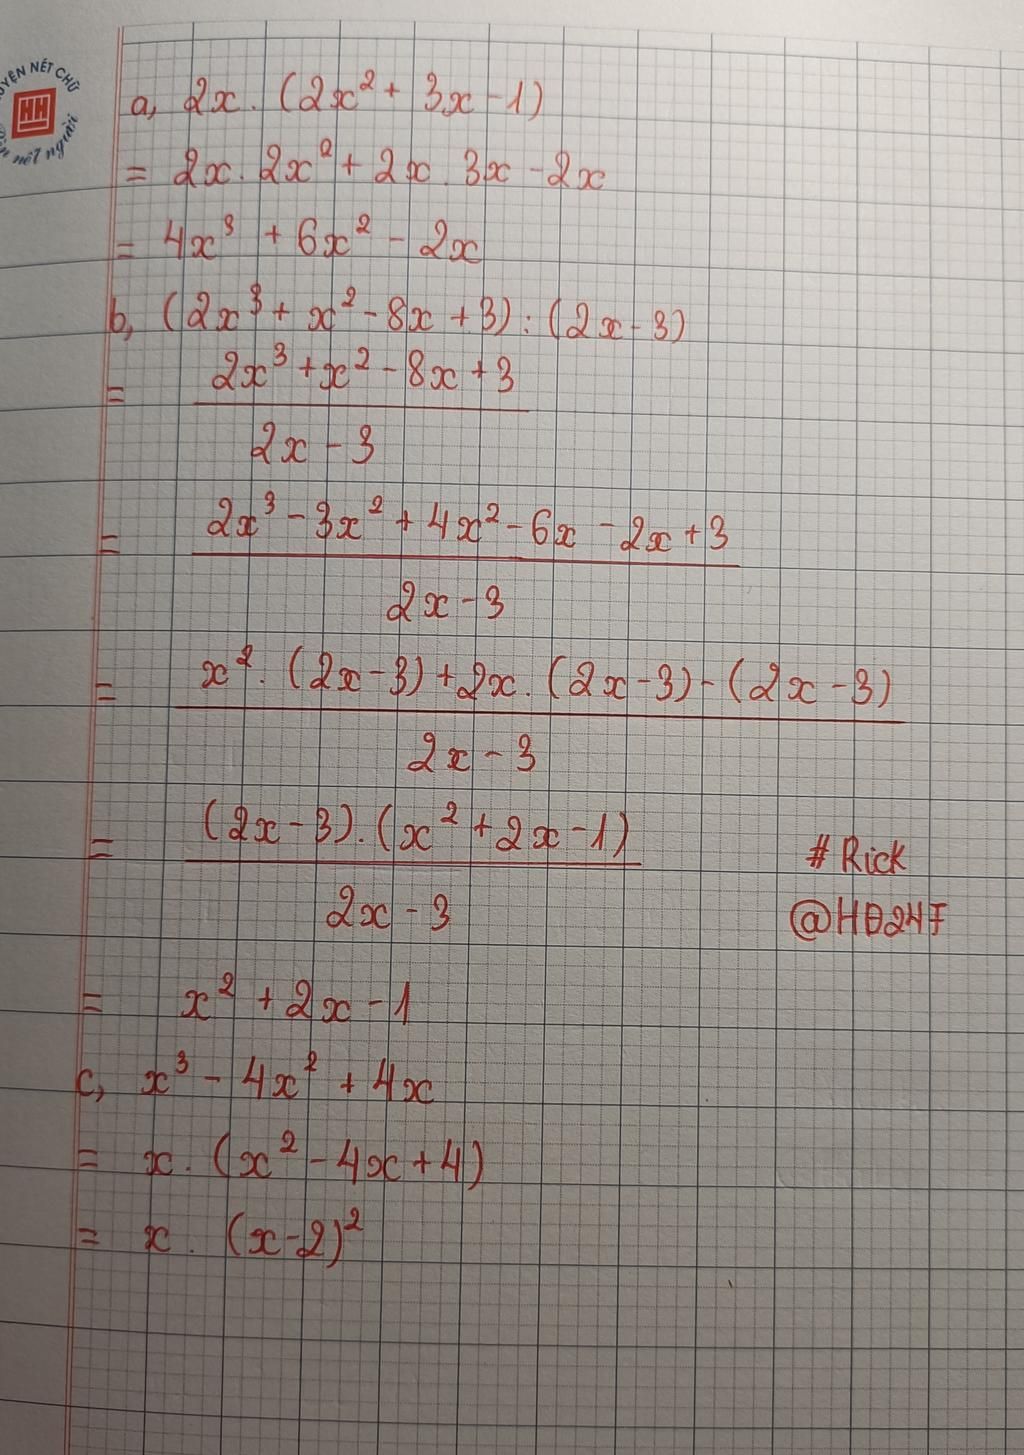 UYỆN NÉT CHỮ
HH
nết người
a, 2x . (2x² + 3x - 1)
= 2x . 2x² + 2x . 3x - 2x
= 4x³ + 6x² - 2x
b, (2x³ + x² - 8x + 3) : (2x - 3)
= 2x³ + x² - 8x + 3
2x - 3
= 2x³ - 3x² + 4x² - 6x - 2x + 3
2x - 3
= x² . (2x - 3) + 2x . (2x - 3) - (2x - 3)
2x - 3
= (2x - 3) . (x² + 2x - 1)
2x - 3
# Rick
@HĐ247
= x² + 2x - 1
c, x³ - 4x² + 4x
= x . (x² - 4x + 4)
= x . (x - 2)²